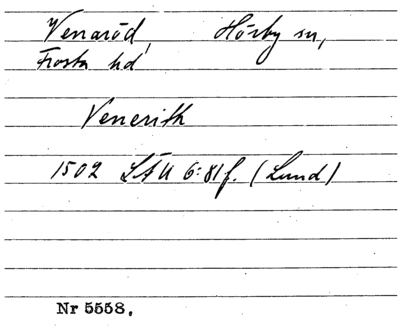 Venaröd, Hörby sn,
Frosta hd
Venerith
1502 LÄU 6:81f. (Lund)
Nr 5558.